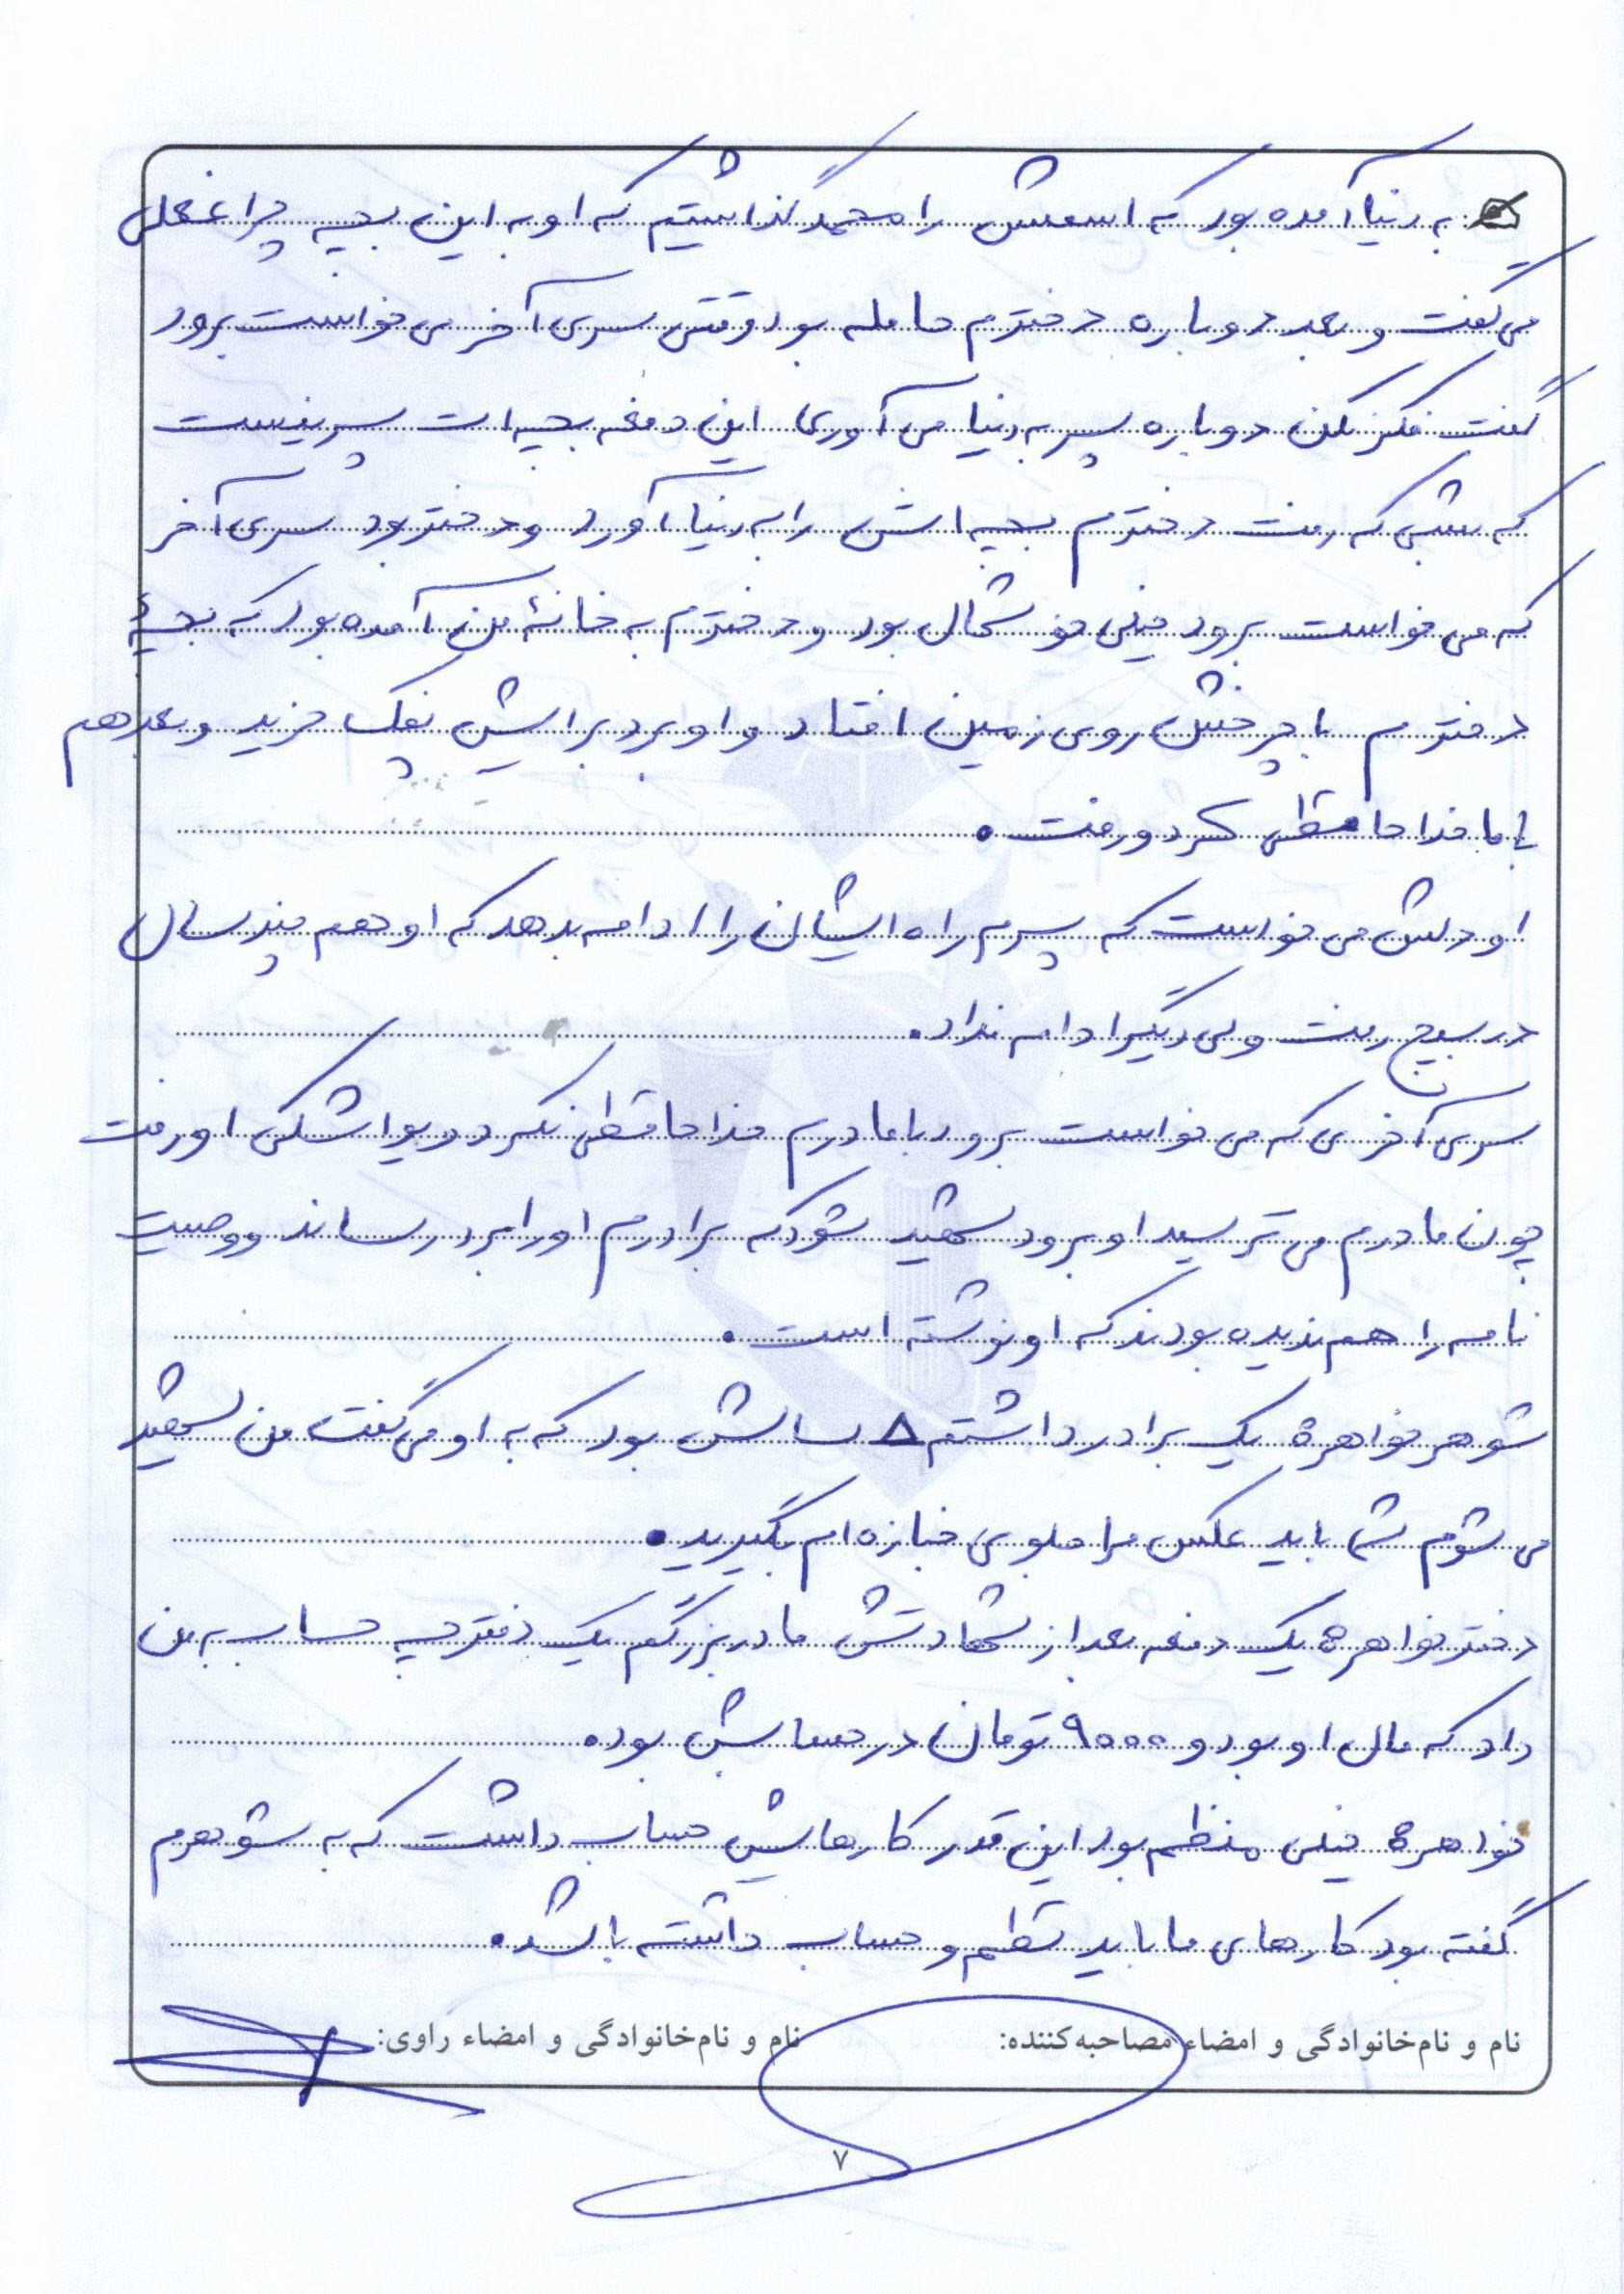 به دنیا آمده بود که اسمش را محمد گذاشتیم که او به این بچه چراغعلی
می گفت و بعد دوباره دخترم حامله بود وقتی سری آخر می خواست برود
گفت فکر نکن دوباره پسر به دنیا می آوری این دفعه بچه ات پسر نیست
که شبی که رفت دخترم بچه اش را به دنیا آورد و دختر بود سری آخر
که می خواست برود خیلی خوشحال بود و دخترم به خانۀ من آمده بود که بچۀ
دخترم با چرخش روی زمین افتاد و او برد برایش پفک خرید و بعد هم
با ما خداحافظی کرد و رفت.
او دلش می خواست که پسرم راه ایشان را ادامه بدهد که او هم چند سال
در بسیج رفت ولی دیگر ادامه نداد.
سری آخری که می خواست برود با مادرم خداحافظی نکرد و یواشکی او رفت
چون مادرم می ترسید او برود شهید شود که برادرم او را برد رساند و وصیت
نامه را هم ندیده بودند که او نوشته است.
شوهر خواهرم یک برادر داشتم ۵ سالش بود که به او می گفت من شهید
می شوم شما باید عکس مرا جلوی جنازه ام بگیرید.
دختر خواهرم یک دفعه بعد از شهادتش مادربزرگم یک دفترچه حساب به من
داد که مال او بود و ۹۰۰۰ تومان در حسابش بود.
خواهرم خیلی منظم بود این قدر کارهایش حساب داشت که به شوهرم
گفته بود کارهای ما باید نظم و حساب داشته باشد.
نام و نام‌خانوادگی و امضاء مصاحبه‌کننده: نام و نام‌خانوادگی و امضاء راوی:
۷